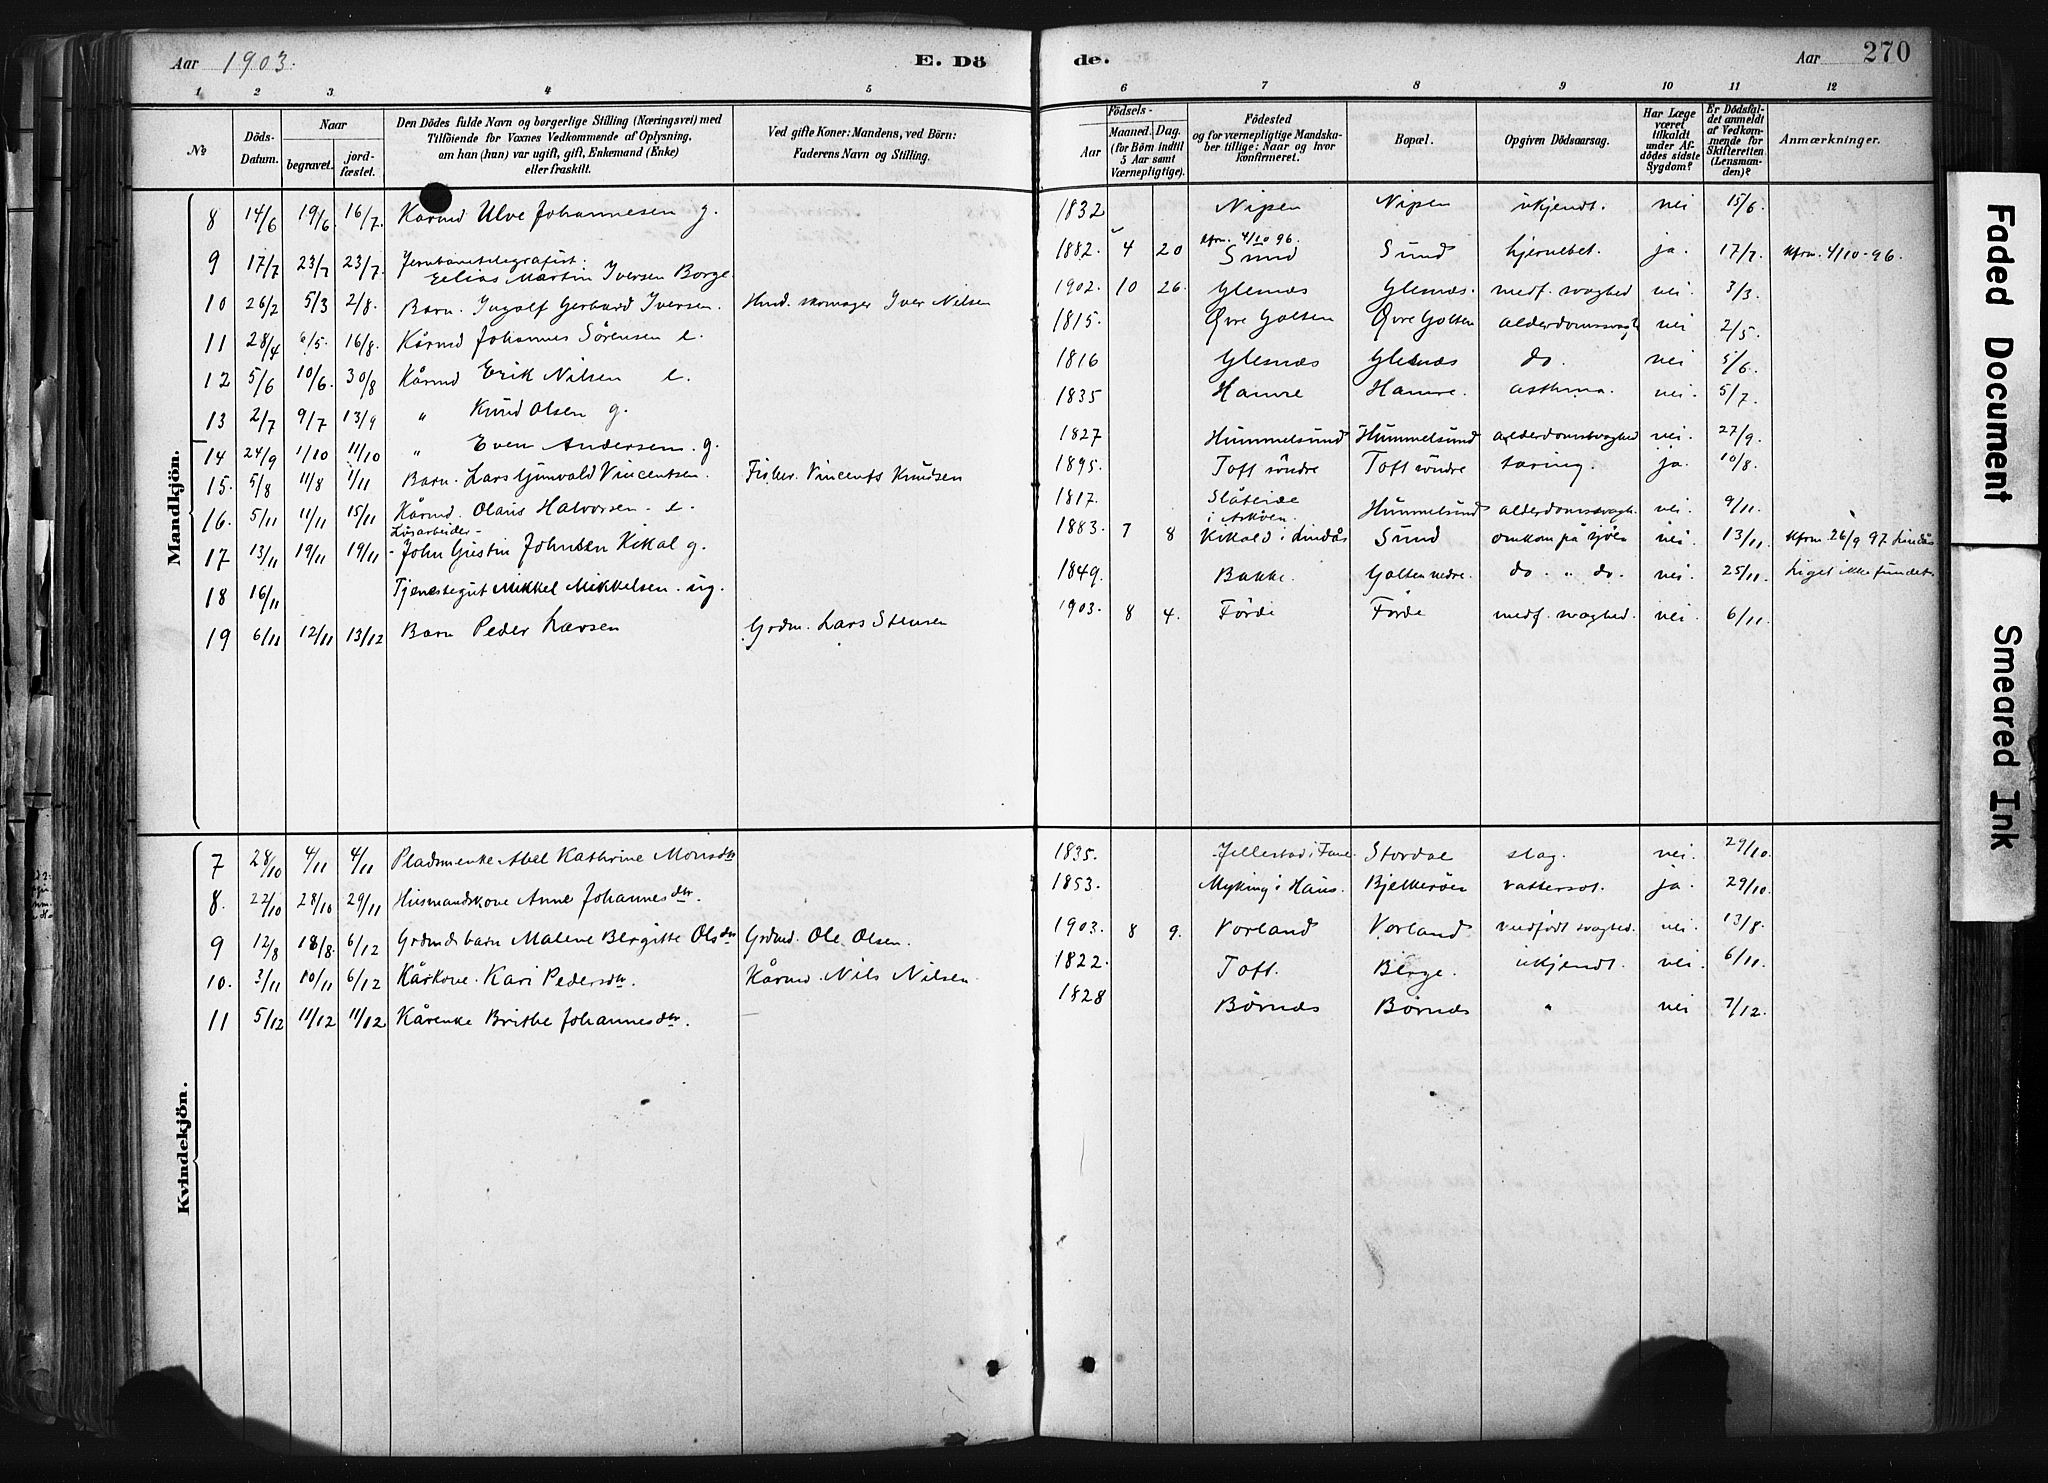 Aar 1903. E. Dö
de. Aar 270
1 2 3 4 5 6 7 8 9 10 11 12
№ Döds-Datum. Naar begravet. jordfæstet. Den Dödes fulde Navn og borgerlige Stilling (Næringsvei) med Tilföiende for Voxnes Vedkommende af Oplysning, om han (hun) var ugift, gift, Enkemand (Enke) eller fraskilt. Ved gifte Koner: Mandens, ved Börn: Faderens Navn og Stilling. Födsels- Aar Maaned. Dag. (for Börn indtil 5 Aar samt Værnepligtige). Födested og for værnepligtige Mandskaber tillige: Naar og hvor konfirmeret. Bopæl. Opgiven Dödsaarsag. Har Læge været tilkaldt under Afdödes sidste Sygdom? Er Dödsfaldet anmeldt af Vedkommende for Skifteretten (Lensmanden)? Anmærkninger.
Mandkjön.
8 14/6 19/6 16/7 Kårmd Ulve Johannesen g. 1832 Nipen Nipen ukjendt. nei 15/6.
9 17/7 23/7 23/7 Jernbanetelegrafist. Elias Martin Iversen Borge 1882. 4 20 Kfrm. 4/10 96. Sund Sund hjernebet. ja. 17/7. Kfrm. 4/10-96.
10 26/2 5/3 2/8. Barn. Ingolf Gerhard Iversen. Husd. skomager Iver Nilsen 1902. 10 26. Glesnæs Glesnæs. medf. svaghed nei. 3/3.
11 28/4 6/5. 16/8. Kårmd Johannes Sörensen e. 1815. Øvre Golten Øvre Golten alderdomssvagh nei 2/5.
12 5/6 10/6. 30/8 Kårmd Erik Nilsen e. 1816 Glesnæs Glesnæs do. nei 5/6.
13 2/7 9/7 13/9 " Knud Olsen g. 1835 Hamre Hamre. asthma. nei. 5/7.
14 24/9 1/10 11/10 " Even Andersen. g. 1827 Hummelsund Hummelsund alderdomssvaghed nei. 27/9.
15. 5/8 11/8 1/11 Barn. Lars Gunvald Vincentsen. Fisker. Vincents Knudsen 1895. Toft söndre Toft söndre tæring. ja. 10/8.
16. 5/11 11/11 15/11 Kårmd. Olaus Halvorsen e. 1817. i Askøen. Hummelsund alderdomssvagh. nei. 9/11.
17 13/11 19/11 19/11 - John Gustin Johnsen Kikal g. 1883. 7 8 Kikald i Lindås Sund omkom på sjøen nei. 13/11 Kfrm. 26/9 97 Lindås
18 16/11 Tjenestegut Mikkel Mikkelsen. ug. 1849. Bakke. Golten nedre. do. " do. nei. 25/11. Liget ikke fundet.
19 6/11 12/11 13/12 Barn Peder Larsen Grdm. Lars Stensen 1903. 8 4. Förde Förde medf. svaghed. nei. 6/11.
Kvindekjön.
7 28/10 4/11 4/11 Pladsmenke Abel Kathrine Monsdtr 1835. Stordal slag. nei. 29/10.
8. 22/10 28/10 29/11 Husmandskone Anne Johannesdtr. 1853. Myking i Haus. Bjelkerøen vattersot. ja. 29/10.
9 12/8 18/8. 6/12 Grdmdsbarn Malene Bergitte Olsdtr Grdmd. Ole Olsen. 1903. 8 9. Vorland Vorland medfödt svaghed. nei. 13/8.
10. 3/11 10/11 6/12 Kårkone. Kari Pedersdtr. Kårmd. Nils Nilsen 1822. Toft. Berge. ukjendt. nei. 6/11.
11 5/12 11/12 11/12 Kårenke Brithe Johannesdtr. — 1828 Börnæs Börnæs " nei 7/12.
Faded Document
Smeared Ink